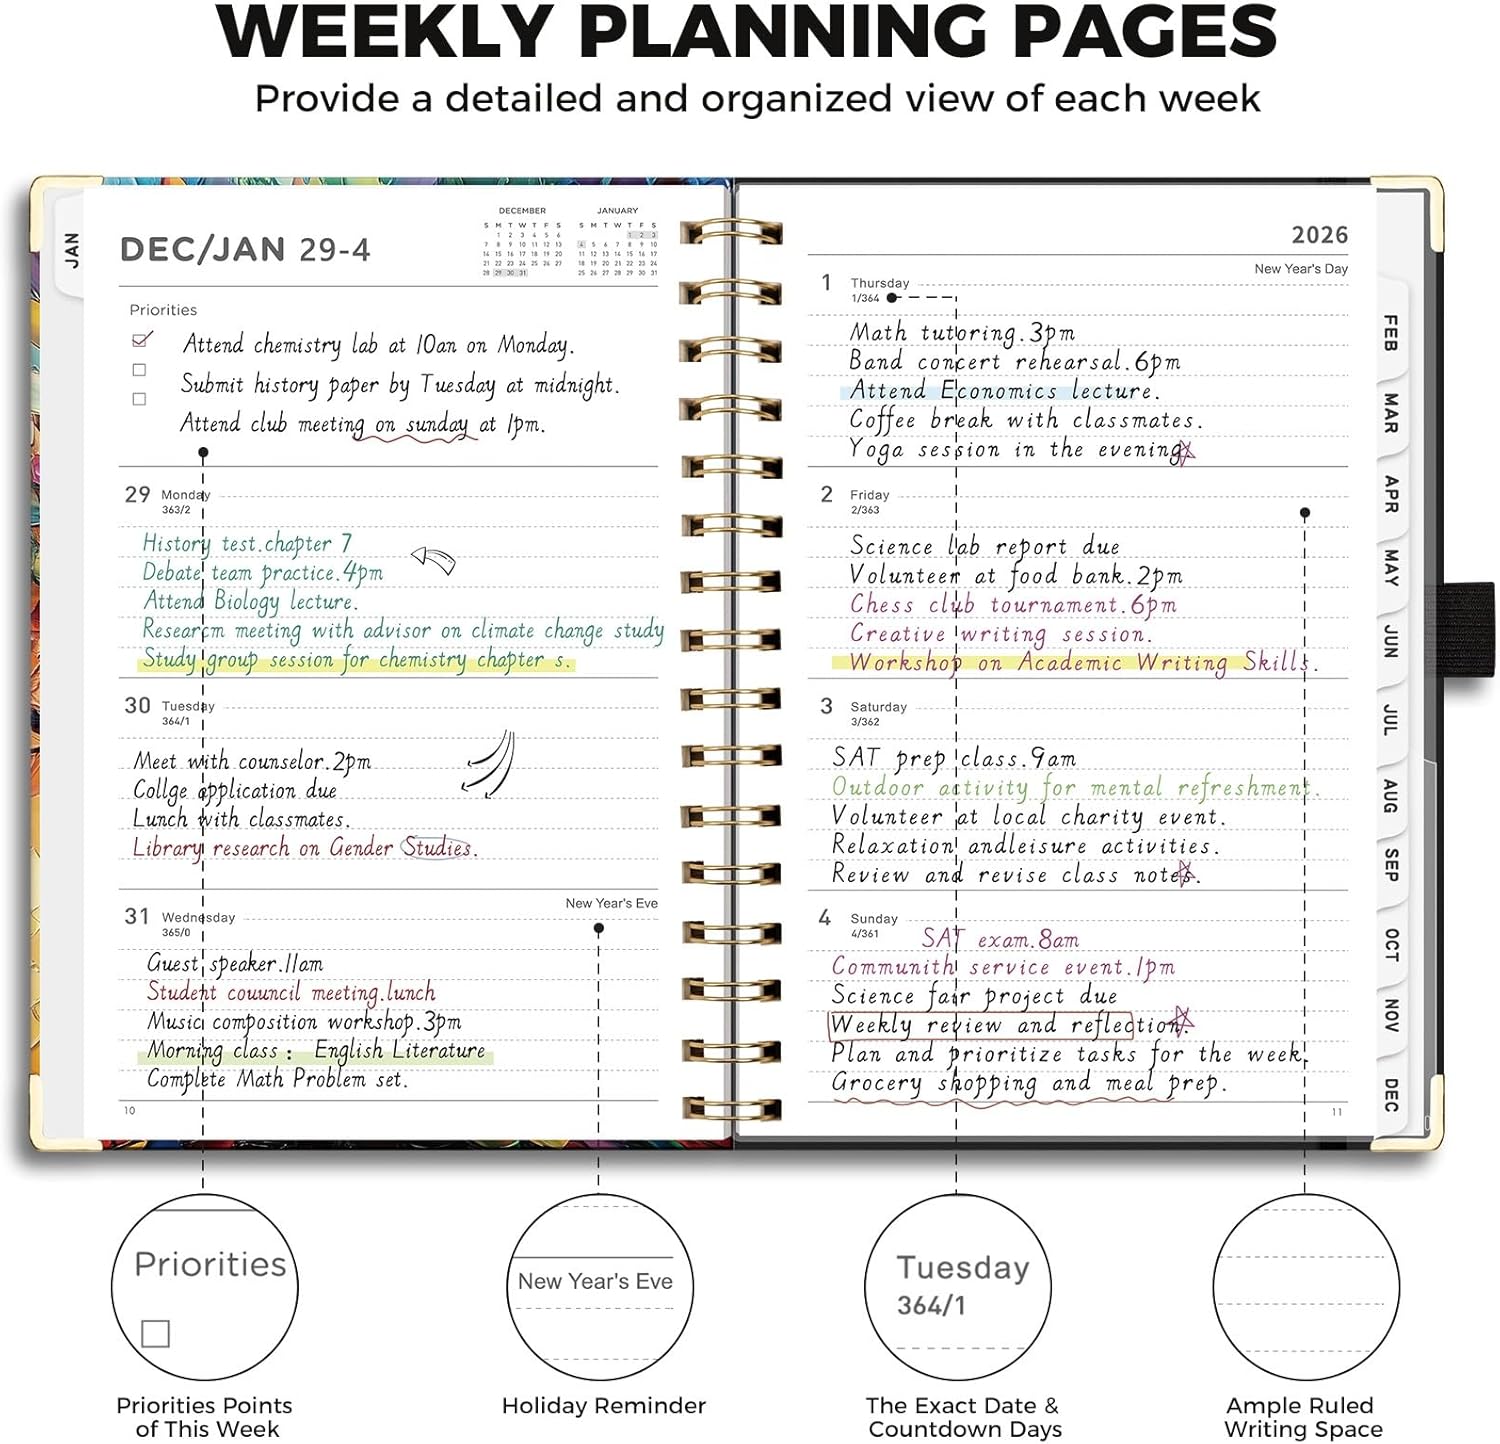 WEEKLY PLANNING PAGES
Provide a detailed and organized view of each week
JAN
DEC/JAN 29-4
DECEMBER
S M T W T F S
1 2 3 4 5 6
7 8 9 10 11 12 13
14 15 16 17 18 19 20
21 22 23 24 25 26 27
28 29 30 31
JANUARY
S M T W T F S
1 2 3
4 5 6 7 8 9 10
11 12 13 14 15 16 17
18 19 20 21 22 23 24
25 26 27 28 29 30 31
Priorities
Attend chemistry lab at 10an on Monday.
Submit history paper by Tuesday at midnight.
Attend club meeting on sunday at 1pm.
29 Monday
363/2
History test.chapter 7
Debate team practice.4pm
Attend Biology lecture.
Researcm meeting with advisor on climate change study
Study group session for chemistry chapter s.
30 Tuesday
364/1
Meet with counselor.2pm
Collge application due
Lunch with classmates.
Library research on Gender Studies.
New Year's Eve
31 Wednesday
365/0
Guest speaker.11am
Student couuncil meeting.lunch
Music composition workshop.3pm
Morning class : English Literature
Complete Math Problem set.
10
2026
New Year's Day
1 Thursday
1/364
Math tutoring.3pm
Band concert rehearsal.6pm
Attend Economics lecture.
Coffee break with classmates.
Yoga session in the evening.
2 Friday
2/363
Science lab report due
Volunteer at food bank.2pm
Chess club tournament.6pm
Creative writing session.
Workshop on Academic Writing Skills.
3 Saturday
3/362
SAT prep class.9am
Outdoor activity for mental refreshment.
Volunteer at local charity event.
Relaxation andleisure activities.
Review and revise class notes.
4 Sunday
4/361
SAT exam.8am
Communith service event.1pm
Science fair project due
Weekly review and reflection.
Plan and prioritize tasks for the week.
Grocery shopping and meal prep.
11
FEB
MAR
APR
MAY
JUN
JUL
AUG
SEP
OCT
NOV
DEC
Priorities
Priorities Points
of This Week
New Year's Eve
Holiday Reminder
Tuesday
364/1
The Exact Date &
Countdown Days
Ample Ruled
Writing Space